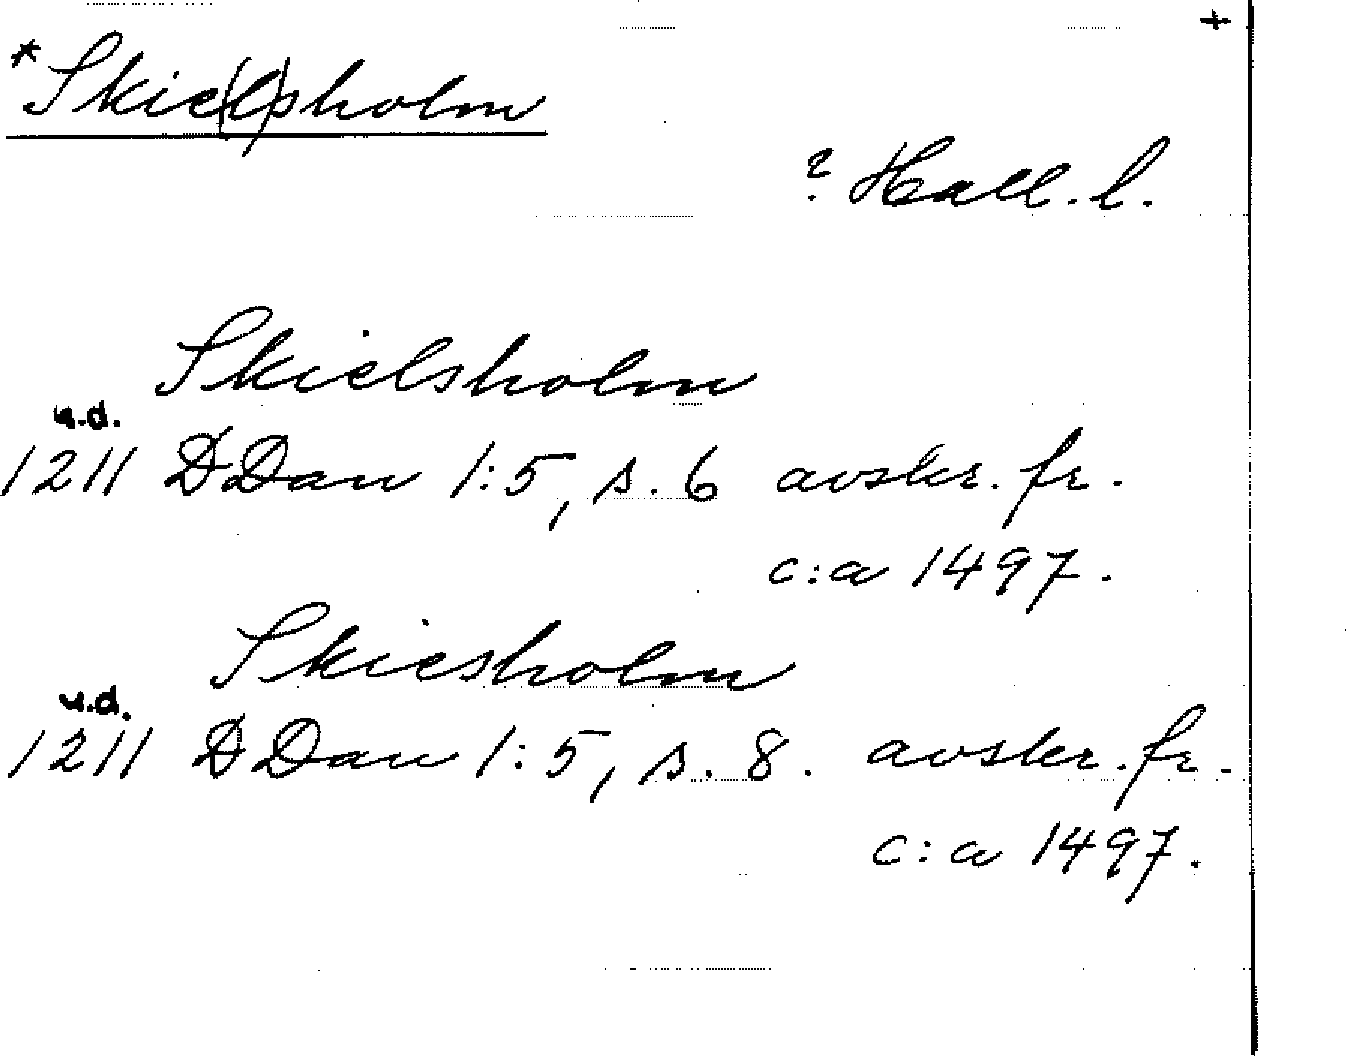 +
*Skie(l)sholm
? Hall. l.
Skielsholm
u.d.
1211 DDan 1:5, s. 6 avskr. fr.
c:a 1497.
Skiesholm
u.d.
1211 DDan 1:5, s. 8. avskr. fr.
c:a 1497.